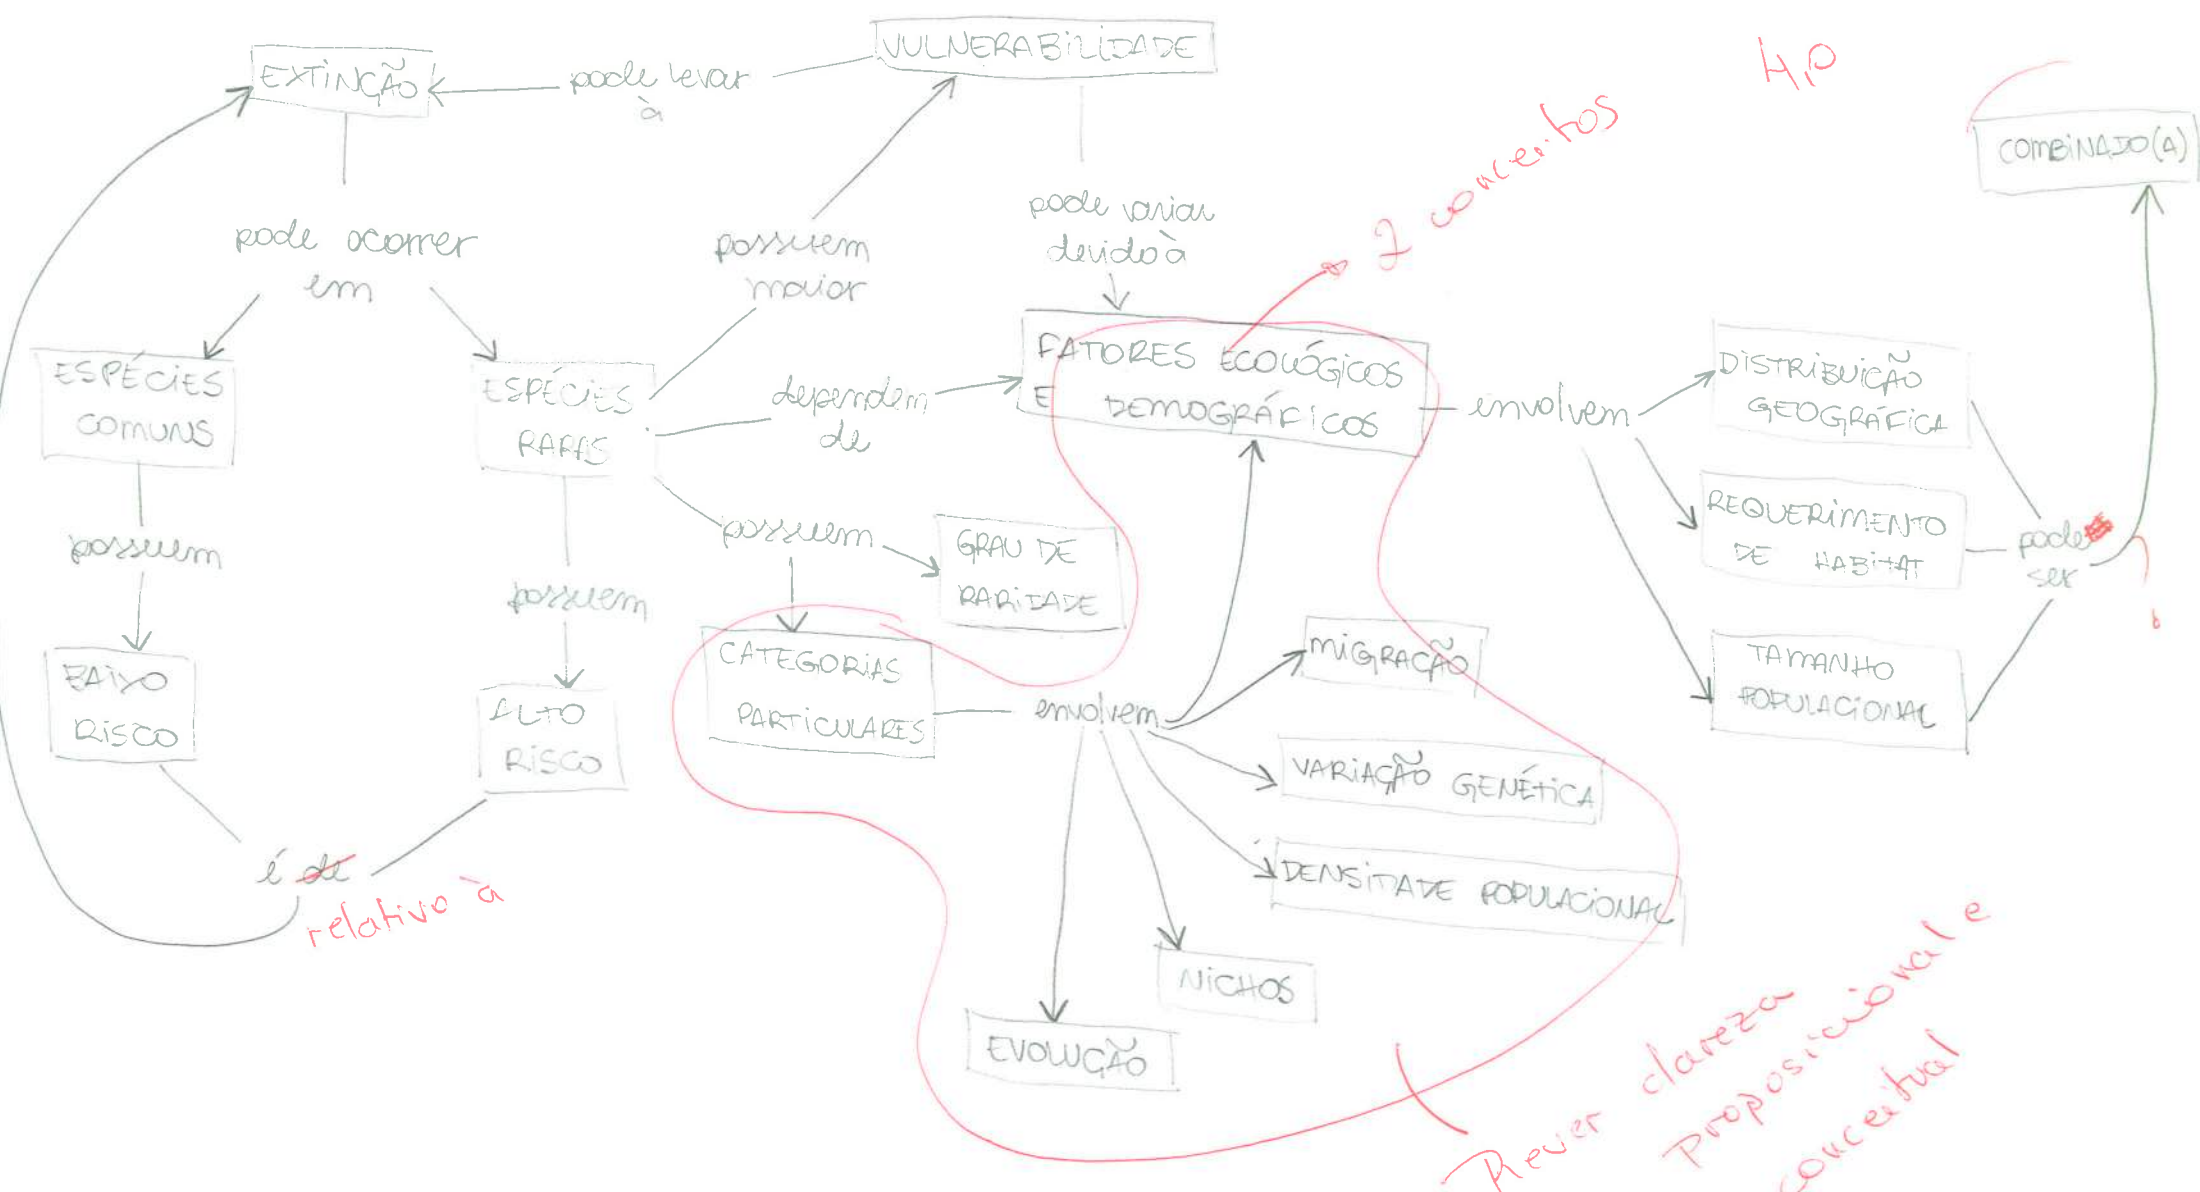 VULNERABILIDADE
EXTINÇÃO
pode levar
à
4,0
COMBINADO(A)
pode ocorrer
em
possuem
maior
pode variar
devido à
2 conceitos
ESPÉCIES
COMUNS
ESPÉCIES
RARAS
dependem
de
FATORES ECOLÓGICOS
E DEMOGRÁFICOS
envolvem
DISTRIBUIÇÃO
GEOGRÁFICA
REQUERIMENTO
DE HABITAT
pode
ser
TAMANHO
POPULACIONAL
possuem
possuem
possuem
GRAU DE
RARIDADE
CATEGORIAS
PARTICULARES
envolvem
MIGRAÇÃO
VARIAÇÃO GENÉTICA
DENSIDADE POPULACIONAL
NICHOS
EVOLUÇÃO
BAIXO
RISCO
ALTO
RISCO
é de
relativo à
Rever clareza
proposicional e
conceitual